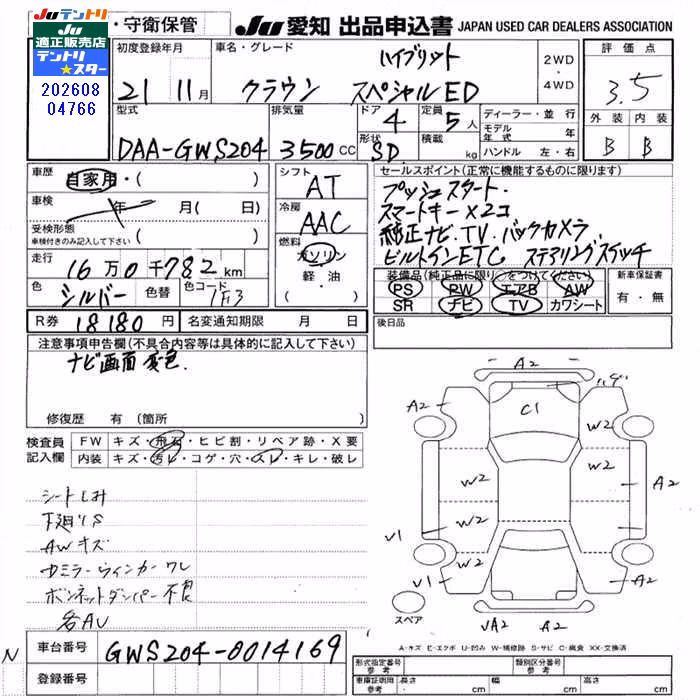 JUテントリ
JU
適正販売店
テントリ
★スター
202608
04766
・守衛保管
JU 愛知 出品申込書 JAPAN USED CAR DEALERS ASSOCIATION
初度登録年月
21 11月
車名・グレード
ハイブリット
クラウン スペシャルED
2WD
・
4WD
評価点
3.5
外装 内装
B B
型式
DAA-GWS204
排気量
3500CC
ドア
4
形状
SD
定員
5人
積載
kg
ディーラー・並行
モデル年式 年
ハンドル 左・右
車歴
自家用・( )
車検
年 月(日)
受検形態
車検付きのみ記入して下さい ( )
走行
16万0千782km
色
シルバー
色替
色コード
1F3
シフト
AT
冷房
AAC
燃料
ガソリン
軽・油
( )
セールスポイント(正常に機能するものに限ります)
プッシュスタート.
スマートキー×2コ
純正ナビ.TV.バックカメラ
ビルトインETC ステアリングスイッチ
装備品(純正品に限り○をつけてください)
PS PW エアB AW
SR ナビ TV カワシート
新車保証書
有・無
R券 18180円
名変通知期限 月 日
後日品
注意事項申告欄(不具合内容等は具体的に記入して下さい)
ナビ画面変色.
修復歴 有(箇所 )
検査員
記入欄
FW キズ・飛石・ヒビ割・リペア跡・X要
内装 キズ・汚レ・コゲ・穴・スレ・キレ・破レ
シートしみ
下廻りS
AWキズ
ドミラーウィンカーワレ
ボンネットダンパー不良
各AU
A2
A2
C1
W2
W2
W2
W2
W2
A2
V1
V1
A2
A2
スペア
A-キズ E-エクボ U-凹み W-補修跡 S-サビ C-腐食 XX-交換済
N
車台番号 GWS204-0014169
登録番号
形式指定番号
類別区分番号
車庫証明用参考
長さ cm 幅 cm 高さ cm